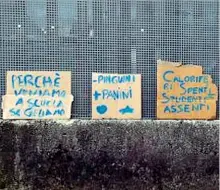 PERCHÈ
VENIAMO
A SCUOLA
SE GELIAMO
-PINGUINI
+PANINI
CALORIFERI
SPENTI
STUDENTI
ASSENTI